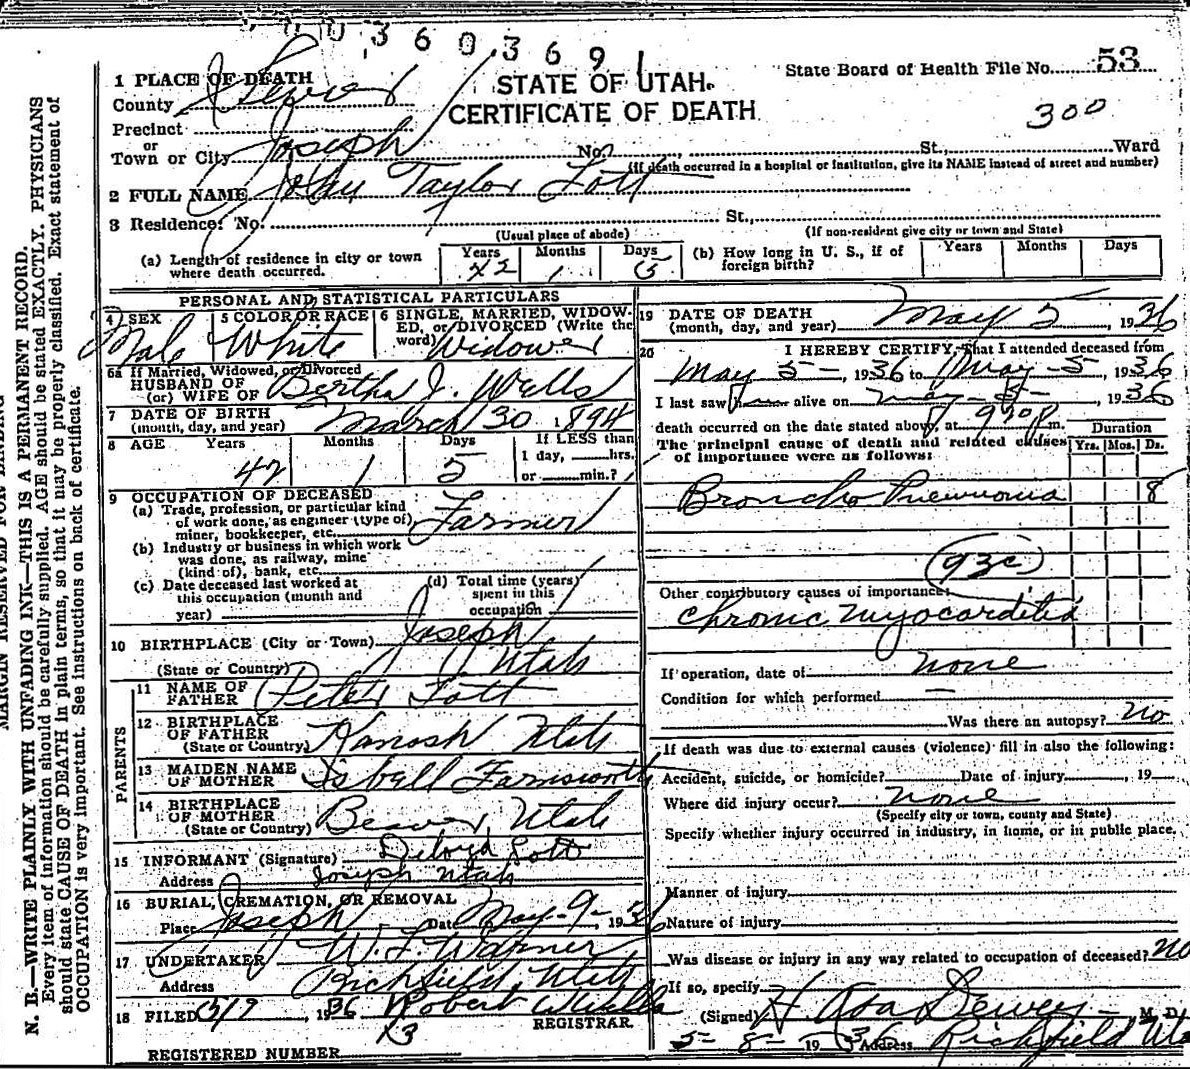 003603691
1 PLACE OF DEATH
STATE OF UTAH.
State Board of Health File No. 53
County Sevier
CERTIFICATE OF DEATH
300
Precinct
or
Town or City Joseph No. St., Ward
(If death occurred in a hospital or institution, give its NAME instead of street and number)
2 FULL NAME John Taylor Lott
3 Residence: No. St.,
(Usual place of abode) (If non-resident give city or town and State)
(a) Length of residence in city or town where death occurred. Years 42 Months 1 Days 5
(b) How long in U. S., if of foreign birth? Years Months Days
PERSONAL AND STATISTICAL PARTICULARS
4 SEX Male
5 COLOR OR RACE White
6 SINGLE, MARRIED, WIDOWED, or DIVORCED (Write the word) Widower
6a If Married, Widowed, or Divorced
HUSBAND OF
(or) WIFE OF Bertha J. Wells
7 DATE OF BIRTH
(month, day, and year) March 30 1894
8 AGE Years 42 Months 1 Days 5 If LESS than
1 day, hrs.
or min.?
9 OCCUPATION OF DECEASED
(a) Trade, profession, or particular kind
of work done, as engineer (type of)
miner, bookkeeper, etc. Farmer
(b) Industry or business in which work
was done, as railway, mine
(kind of), bank, etc.
(c) Date deceased last worked at
this occupation (month and
year)
(d) Total time (years)
spent in this
occupation
10 BIRTHPLACE (City or Town) Joseph
(State or Country) Utah
PARENTS
11 NAME OF
FATHER Peter Lott
12 BIRTHPLACE
OF FATHER
(State or Country) Kanosh Utah
13 MAIDEN NAME
OF MOTHER Isbell Farnsworth
14 BIRTHPLACE
OF MOTHER
(State or Country) Beaver Utah
15 INFORMANT (Signature) Deloyd Lott
Address Joseph Utah
16 BURIAL, CREMATION, OR REMOVAL
Place Joseph Date May-9-, 1936
17 UNDERTAKER W. L. Warner
Address Richfield, Utah
18 FILED 5/9, 1936 Robert
REGISTRAR.
REGISTERED NUMBER
19 DATE OF DEATH
(month, day, and year) May 5, 1936
20 I HEREBY CERTIFY, That I attended deceased from
May 5-, 1936 to May-5, 1936
I last saw alive on May-5-, 1936
death occurred on the date stated above, at m.
Duration
The principal cause of death and related causes
of importance were as follows: Yrs. Mos. Ds.
Broncho Pneumonia 8
93c
Other contributory causes of importance:
Chronic Myocarditis
If operation, date of none
Condition for which performed —
Was there an autopsy? No
If death was due to external causes (violence) fill in also the following:
Accident, suicide, or homicide? Date of injury, 19
Where did injury occur? none
(Specify city or town, county and State)
Specify whether injury occurred in industry, in home, or in public place.
Manner of injury
Nature of injury
Was disease or injury in any way related to occupation of deceased? No
If so, specify
(Signed) H Asa Dewey M. D.
5-8-1936 Address Richfield Uta
MARGIN RESERVED FOR BINDING
N. B.—WRITE PLAINLY WITH UNFADING INK—THIS IS A PERMANENT RECORD.
Every item of information should be carefully supplied. AGE should be stated EXACTLY. PHYSICIANS
should state CAUSE OF DEATH in plain terms, so that it may be properly classified. Exact statement of
OCCUPATION is very important. See instructions on back of certificate.